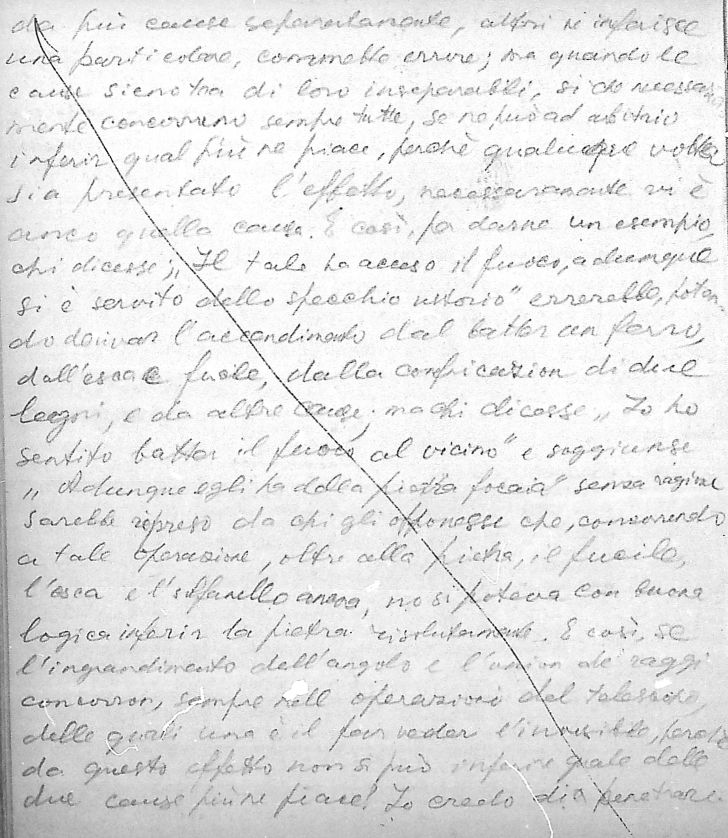 da più cause separatamente, altri ne inferisce
una particolare, commette errore; ma quando le
cause sieno tra di loro inseparabili, si che necessaria
mente concorrino sempre tutte, se ne può ad arbitrio
inferir qual più ne piace, perchè qualunque volta
sia presentato l'effetto, necessaramente vi è
anco quella causa. E così, per darne un esempio,
chi dicesse; „Il tale ha acceso il fuoco, adunque
si è servito dello specchio ustorio" errerebbe, poten-
do derivar l'accendimento dal batter un ferro,
dall'esca e fucile, dalla confricazion di due
legni, e da altre cause; ma chi dicesse „Io ho
sentito batter il fuoco al vicino" e soggiunse
„Adunque egli ha della pietra focaia" senza ragione
sarebbe ripreso da chi gli opponesse che, concorrendo
a tale operazione, oltre alla pietra, il fucile,
l'esca e l'solfanello ancora, no si poteva con buona
logica inferir la pietra risolutamente. E così, se
l'ingrandimento dell'angolo e l'union de' raggi
concorron, sempre nell operazioni del telescopio,
delle quali una è il far veder l'invisibile, perchè
da questo effetto non si può inferire quale delle
due cause più ne piace? Io credo di penetrare